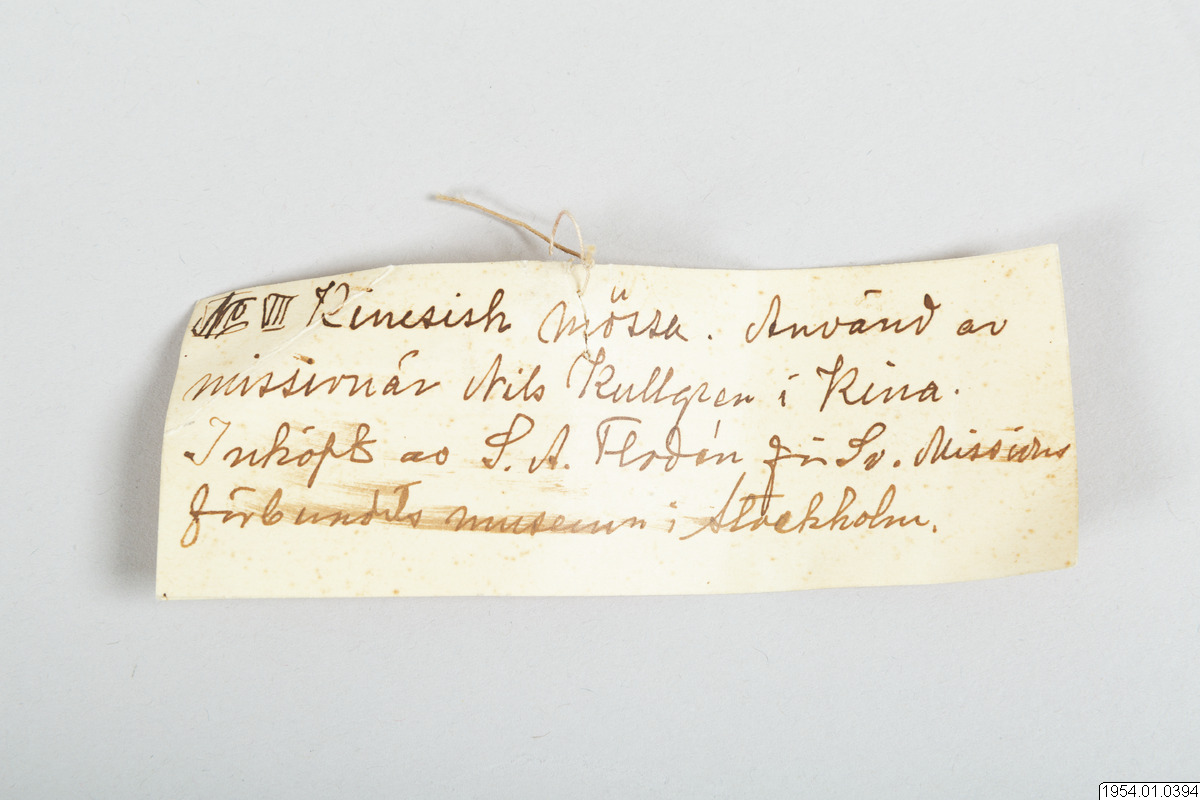 No VII Kinesisk mössa. Använd av
missionär Nils Kullgren i Kina.
Inköpt av S. A. Flodén för Sv. Missions
förbundets museum i Stockholm.
1954.01.0394